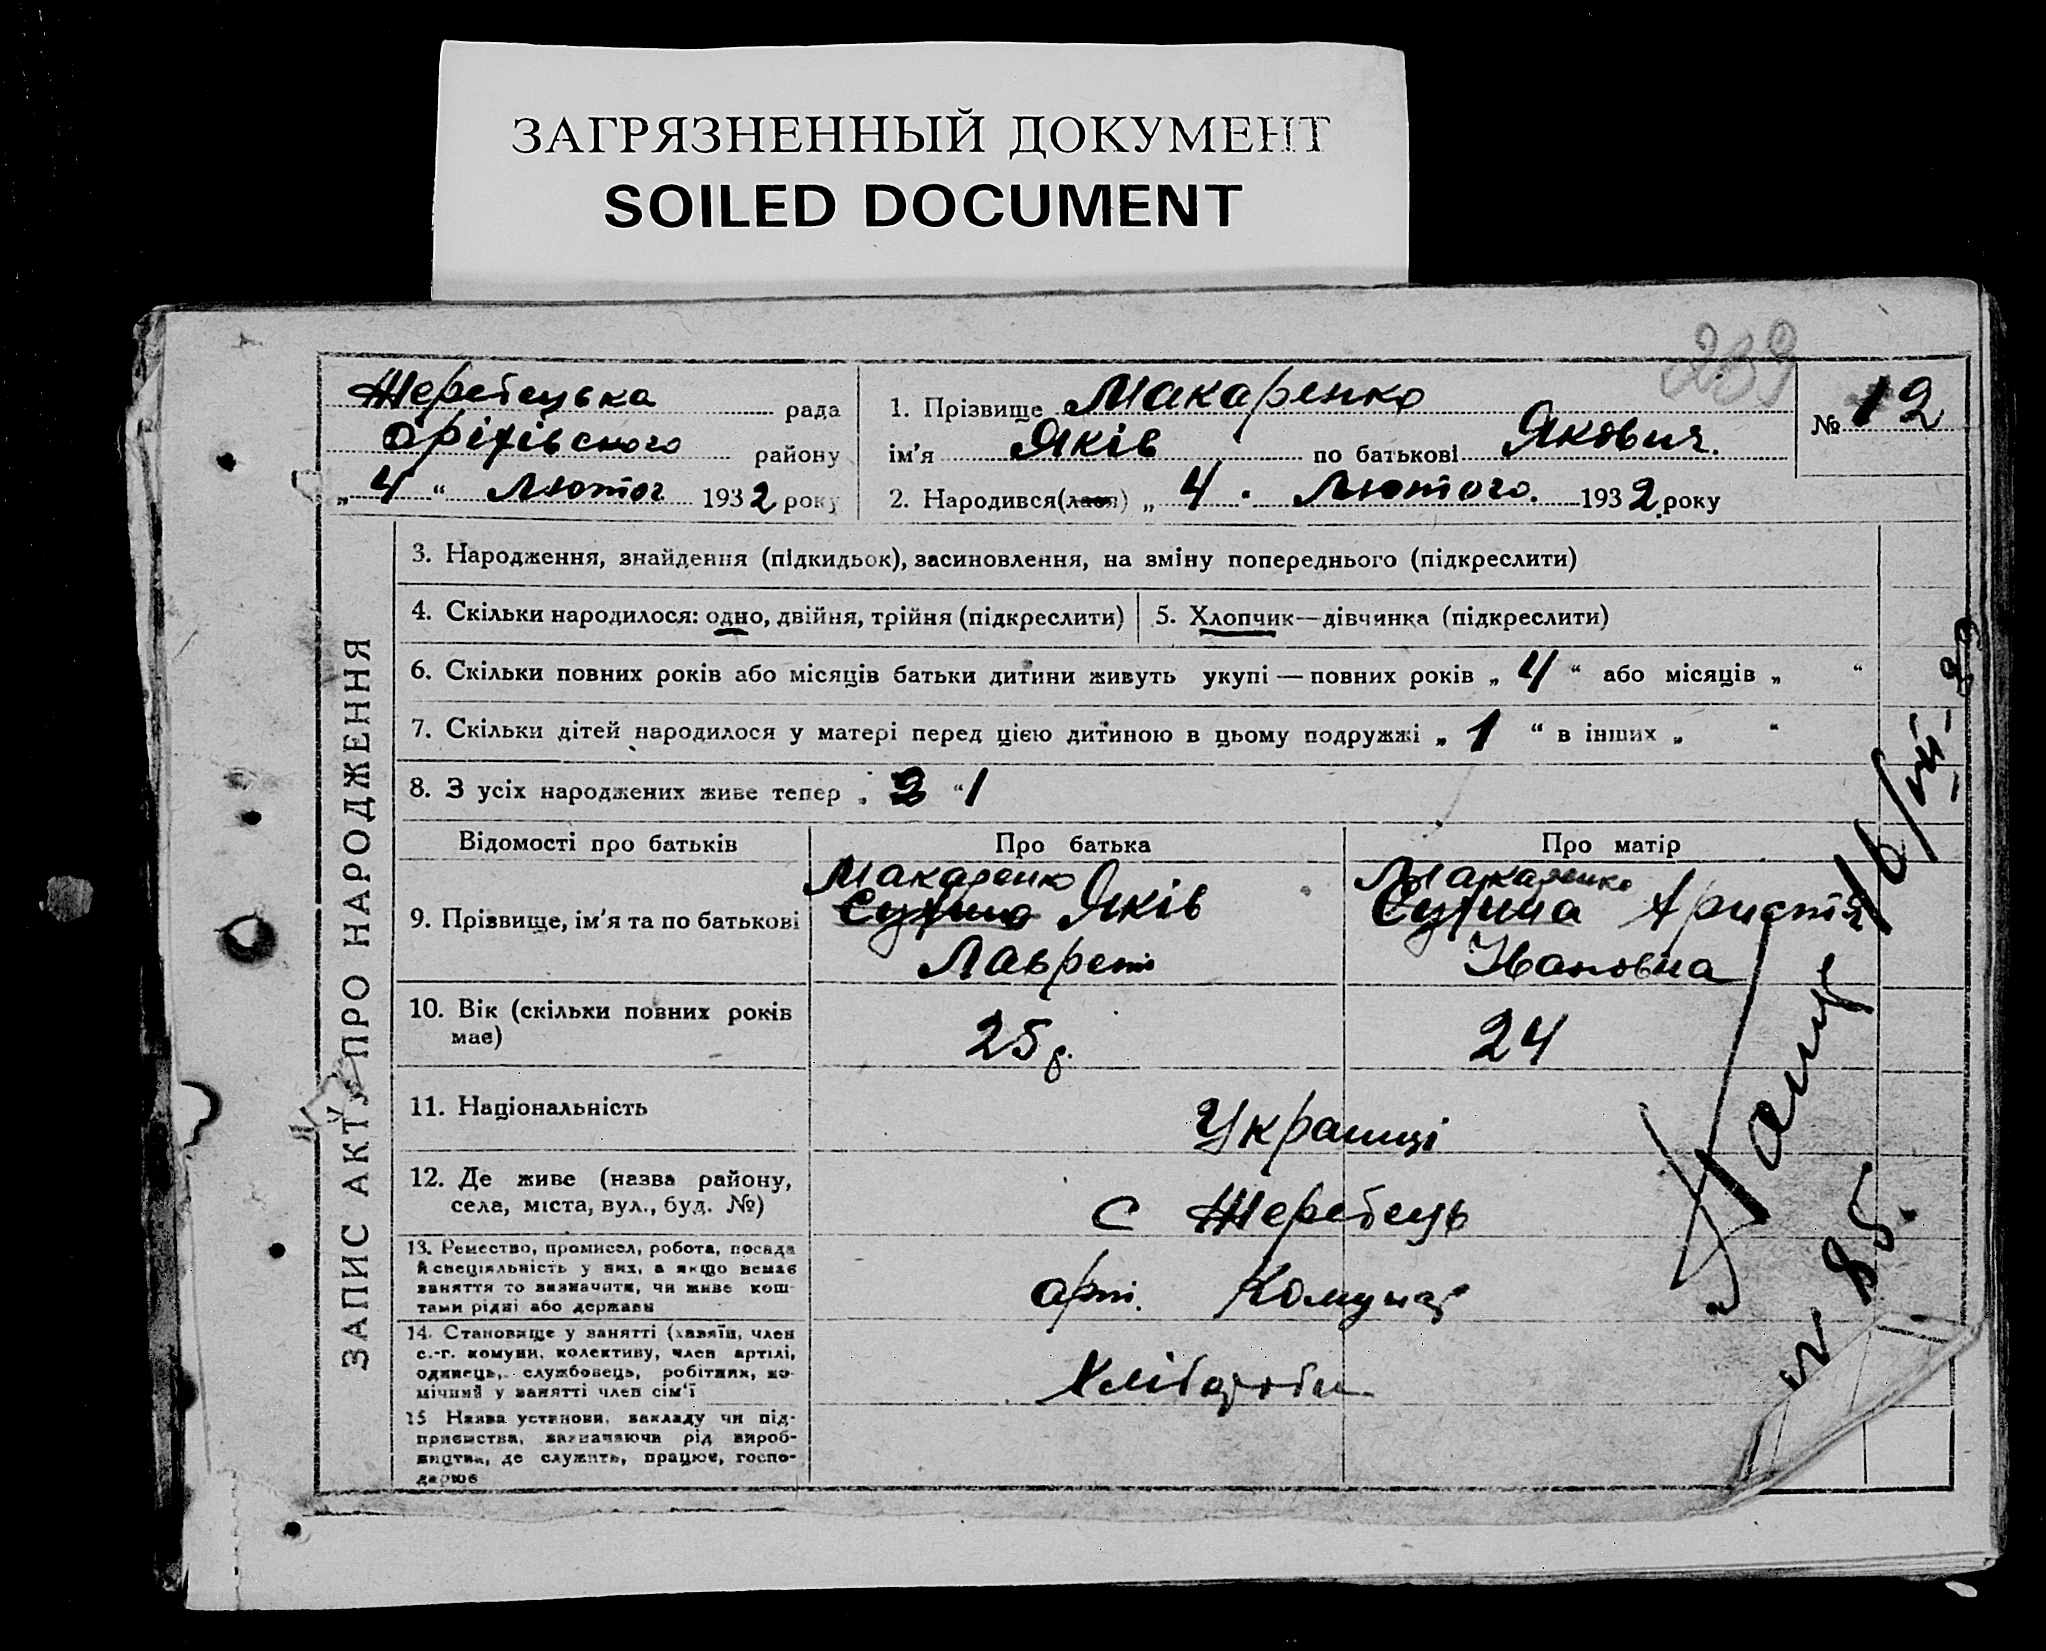 ЗАГРЯЗНЕННЫЙ ДОКУМЕНТ
SOILED DOCUMENT
239
Жеребецька рада
Оріхівського району
„ 4 “ Лютог 1932 року
1. Прізвище Макаренко
ім'я Яків по батькові Якович.
2. Народився(лася) „ 4 . Лютого. 1932 року
№ 12
ЗАПИС АКТУ ПРО НАРОДЖЕННЯ
3. Народження, знайдення (підкидьок), засиновлення, на зміну попереднього (підкреслити)
4. Скільки народилося: одно, двійня, трійня (підкреслити)
5. Хлопчик—дівчинка (підкреслити)
6. Скільки повних років або місяців батьки дитини живуть укупі — повних років „ 4 “ або місяців „ “
7. Скільки дітей народилося у матері перед цією дитиною в цьому подружжі „ 1 “ в інших „ “
8. З усіх народжених живе тепер „ 2 “ 1
Відомості про батьків
Про батька
Про матір
9. Прізвище, ім'я та по батькові
Макаренко
Яків
Лаврент
Макаренко
Христя
Ивановна
10. Вік (скільки повних років
має)
25 р.
24
11. Національність
Українці
12. Де живе (назва району,
села, міста, вул., буд. №)
с Жеребець
13. Ремество, промисел, робота, посада
й спеціяльність у них, а якщо немає
заняття то визначити, чи живе кош-
тами рідні або держави
арт. Комунар
14. Становище у занятті (хазяїн, член
с.-г. комуни, колективу, член артілі,
одинець, службовець, робітник, по-
мічний у занятті член сім'ї
Хлібороби
15 Назва установи, закладу чи під-
приємства, зазначаючи рід вироб-
ництва, де служить, працює, госпо-
дарює